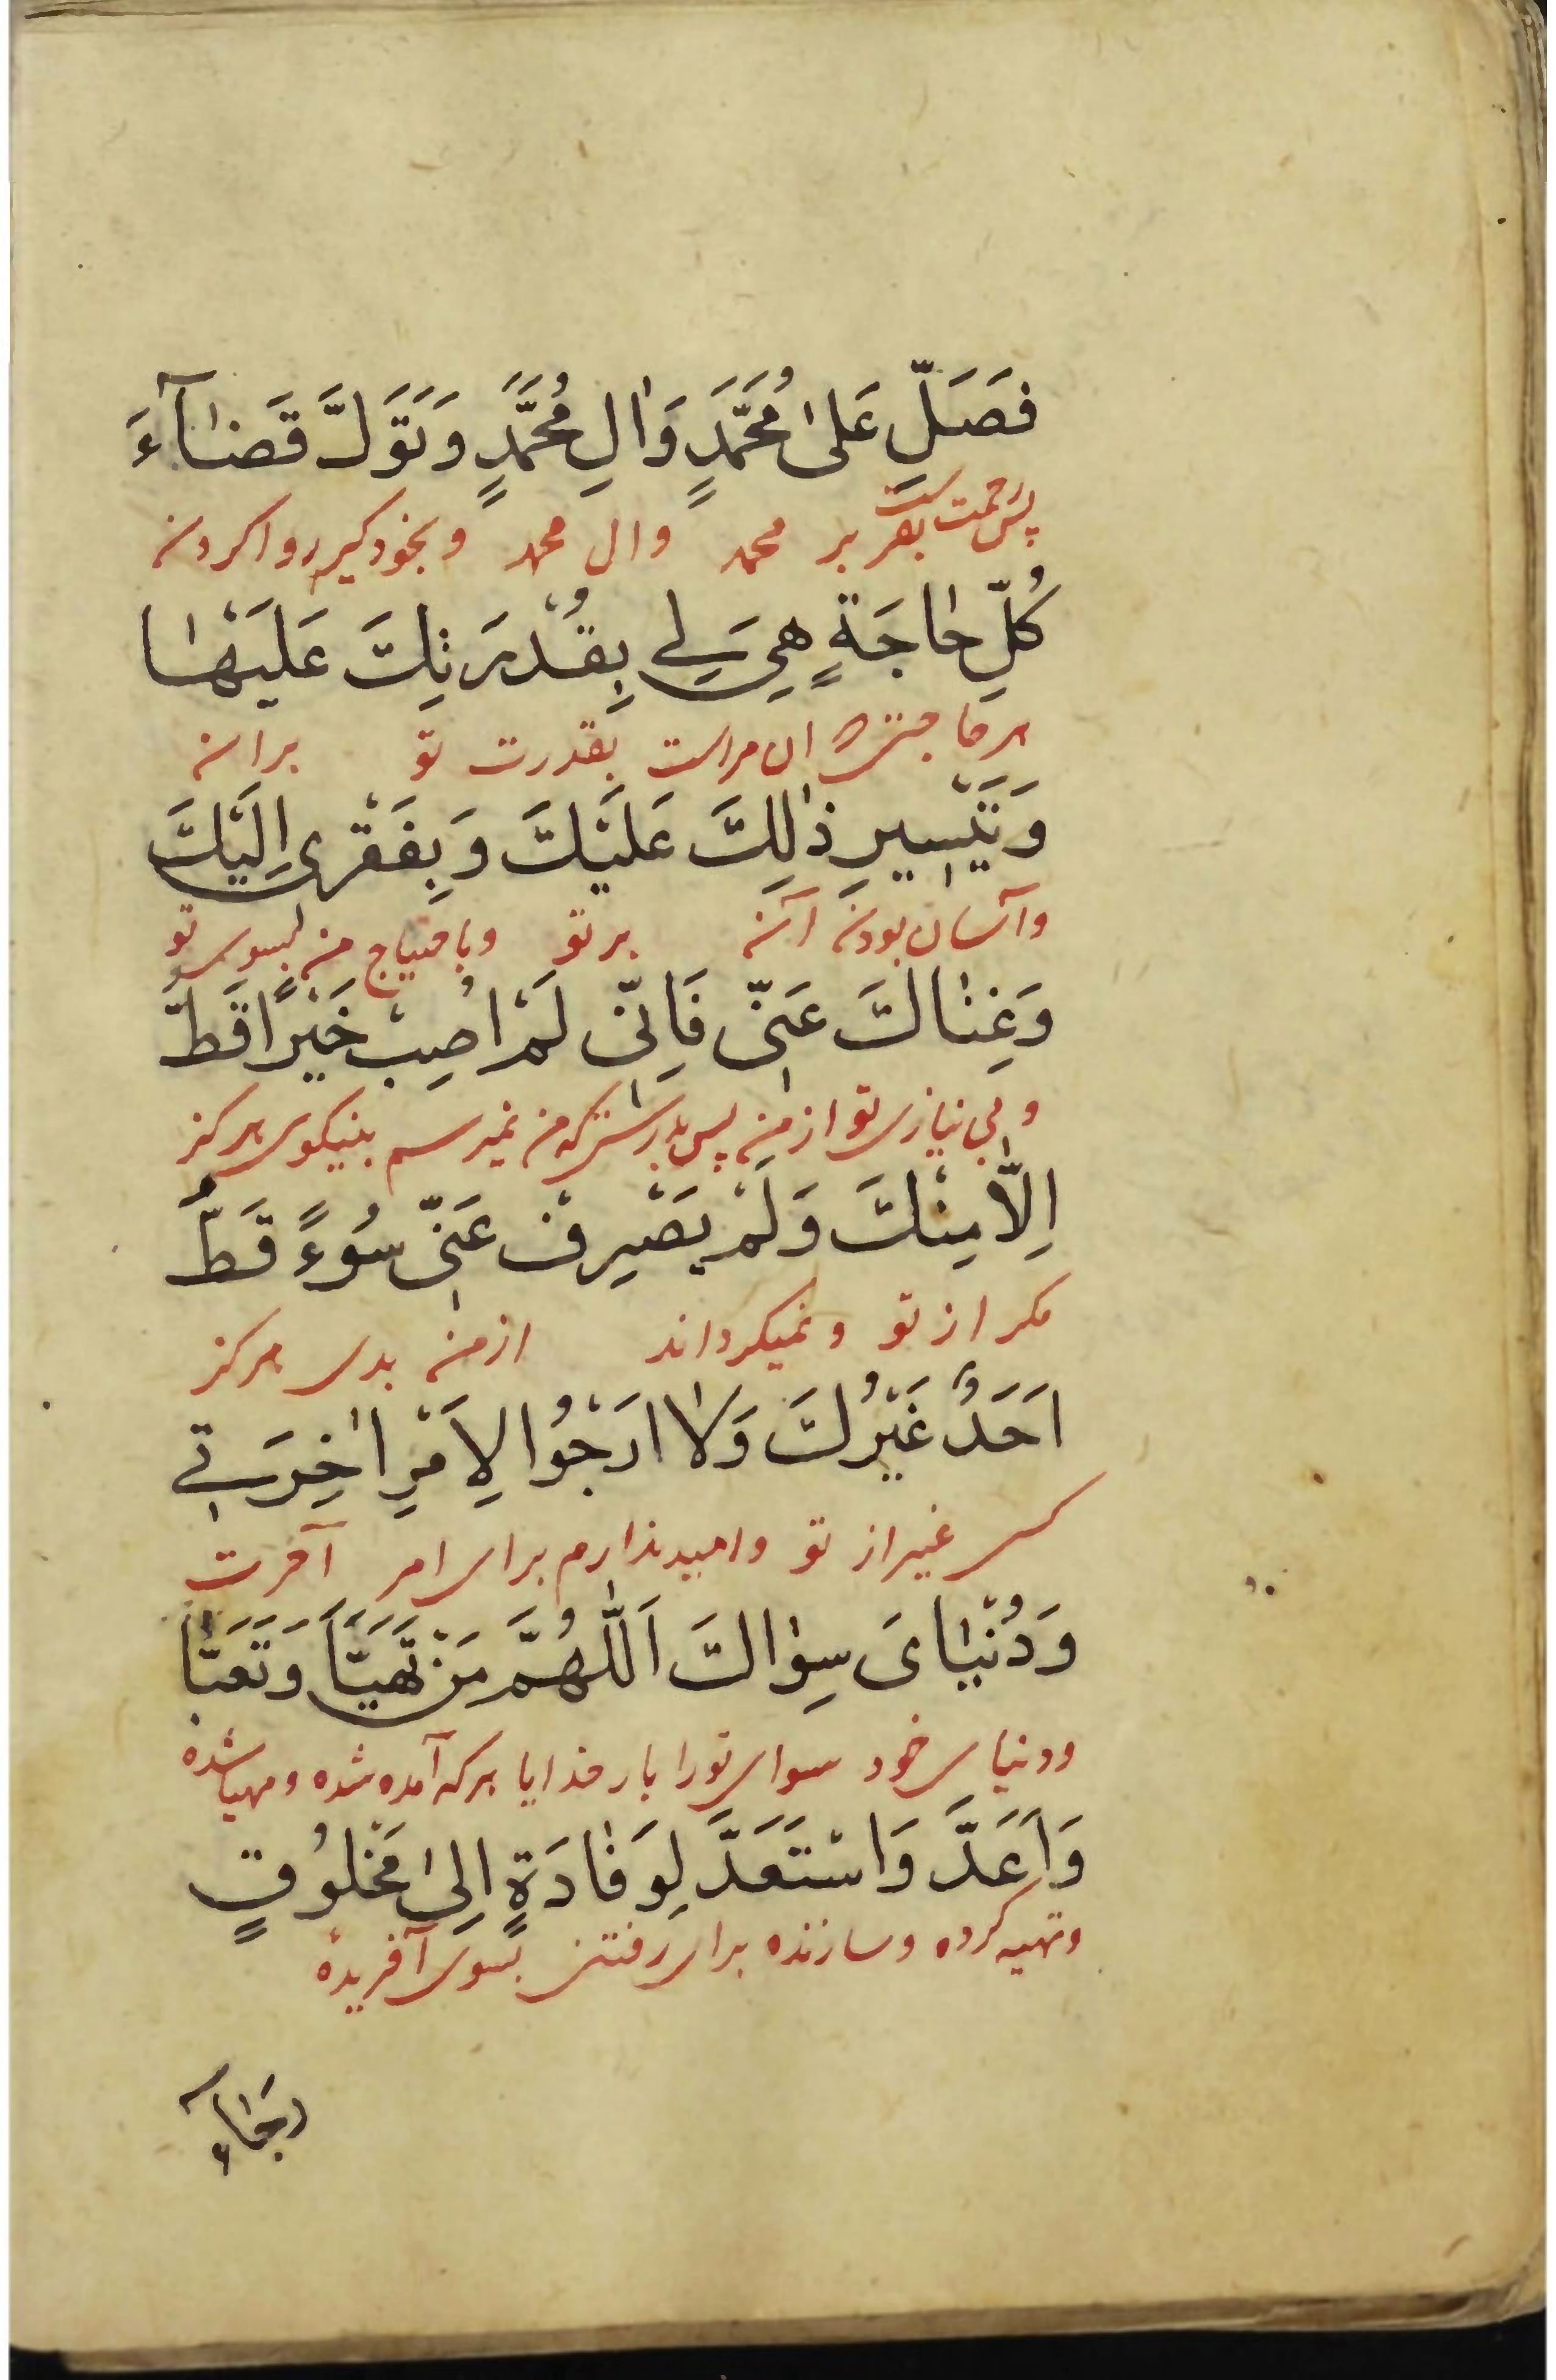 فَصَلِّ عَلىٰ مُحَمَّدٍ وَاٰلِ مُحَمَّدٍ وَتَوَلَّ قَضٰآءَ
پس رحمت بفرست بر محمد وال محمد وبخود کیر روا کردن
كُلِّ حٰاجَةٍ هِيَ لِي بِقُدْرَتِكَ عَلَيْهٰا
هر حاجتی که ان مراست بقدرت تو بران
وَتَيْسِيرِ ذٰلِكَ عَلَيْكَ وَبِفَقْرى اِلَيْكَ
وآسان بودن آن بر تو وباحتیاج من بسوی تو
وَغِنٰاكَ عَنّى فَاِنّى لَمْ اُصِبْ خَيْرًا قَطُّ
وبی نیازی تو از من پس بدرستی که من نمیرسم بنیکوی هرکز
اِلّٰا مِنْكَ وَلَمْ يَصْرِفْ عَنّى سُوءً قَطُّ
مکر از تو ونمیکرداند از من بدی هرکز
اَحَدٌ غَيْرُكَ وَلٰا اَرْجُوا لِاَمْرِ اٰخِرَتي
کسی غیر از تو وامید ندارم برای امر آخرت
وَدُنْيٰاىَ سِوٰاكَ اَللّٰهُمَّ مَنْ تَهَيَّأَ وَتَعَبَّأَ
ودنیای خود سوای تورا بار خدایا هر که آمده شده ومهیا شده
وَاَعَدَّ وَاسْتَعَدَّ لِوَفٰادَةٍ اِلىٰ مَخْلُوقٍ
وتهیه کرده وسازنده برای رفتن بسوی آفریدهٔ
رجٰآء